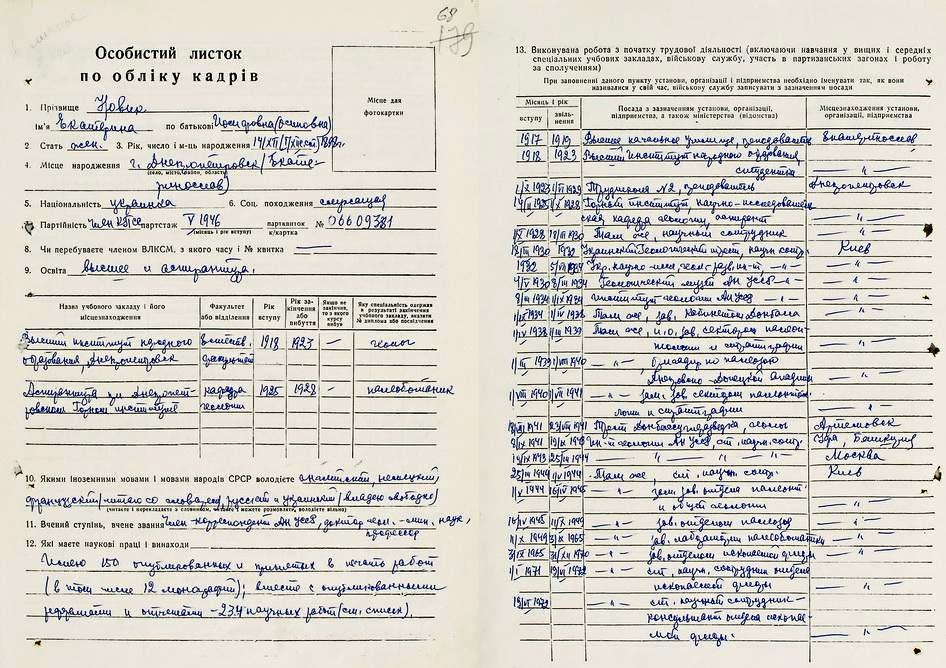 68
179
Особистий листок
по обліку кадрів
Місце для
фотокартки
1. Прізвище Новик
Ім'я Екатерина по батькові Иосифовна (Осиповна)
2. Стать жен. 3. Рік, число і м-ць народження
4. Місце народження г. Днепропетровск (Екате-
(село, місто, район, область)
ринослав)
5. Національність украинка 6. Соц. походження служащая
Партійність член КПСС партстаж V 1946 партквиток № 06609381
(місяць і рік вступу) к/картка
8. Чи перебуваєте членом ВЛКСМ, з якого часу і № квитка —
9. Освіта высшее и аспирантура.
Назва учбового закладу і його місцезнаходження
Факультет або відділення
Рік вступу
Рік закінчення або вибуття
Якщо не закінчив, то з якого курсу вибув
Яку спеціальність одержав в результаті закінчення учбового закладу, вказати № диплома або посвідчення
Высший институт народного 1918 1923 — геолог
образования, Днепропетровск факультет
Аспирантура при Днепропет- кафедра 1925 1928 — палеоботаник
ровском Горном институте геологии
10. Якими іноземними мовами і мовами народів СРСР володієте английский, немецкий
французский (читаю со словарем), русский и украинский (владею свободно)
(читаєте і перекладаєте з словником, читаєте і можете розмовляти, володієте вільно)
11. Вчений ступінь, вчене звання Член-корреспондент АН УССР, доктор геол.-мин. наук,
профессор
12. Які маєте наукові праці і винаходи
Имею 150 опубликованных и принятых в печать работ
(в том числе 12 монографий); вместе с опубликованными
рефератами и отчетами – 234 научных работ (см. список).
13. Виконувана робота з початку трудової діяльності (включаючи навчання у вищих і середніх
спеціальних учбових закладах, військову службу, участь в партизанських загонах і роботу
за сполученням)
При заповненні даного пункту установи, організації і підприємства необхідно іменувати так, як вони
називалися у свій час, військову службу записувати з зазначенням посади
Місяць і рік
вступу
звільнення
Посада з зазначенням установи, організації, підприємства, а також міністерства (відомства)
Місцезнаходження установи, організації, підприємства
1917 1919 Высшее начальное училище, преподаватель Екатеринослав
1918 1923 Высший институт народного образования,
студентка — " —
1923 1929 Трудшкола №2, преподаватель Днепропетровск
1925 1928 Горный институт, научно-исследователь-
ская кафедра геологии, аспирант — " —
1928 1930 Там же, научный сотрудник — " —
1930 1932 Украинский Геологический трест, научн. сотр. Киев
1932 — " —
1930 1934 Геологический музей АН УССР — " —
1934 1934 Институт геологии АН УССР — " —
1934 1938 Там же, зав. кабинетом Донбасса — " —
1938 1939 Там же, и.о. зав. сектором палеон-
тологии и стратиграфии — " —
1939 1940 — " —
Днепровско-Донецкой впадины — " —
1940 1941 — " — зам. зав. секцией палеонто-
логии и стратиграфии — " —
1941 1941 Трест Донбассуглеразведка, геолог Артемовск
1941 1943 Ин-т геологии АН УССР, ст. научн. сотр. Уфа, Башкирия
1943 1944 — " — Москва
1944 Там же, ст. научн. сотр. Киев
1944 1945 зам. зав. отдела палеонт.
и общей геологии — " —
1945 1949 — " — зав. отделом палеозоя — " —
1949 1965 — " — зав. лабораторией палеоботаники — " —
1965 1970 — " — зав. отделом ископаемой флоры — " —
1971 1972 — " — ст. научн. сотрудник отдела
ископаемой флоры — " —
1972 — " — ст. научный сотрудник-
консультант отдела ископае-
мой флоры. — " —